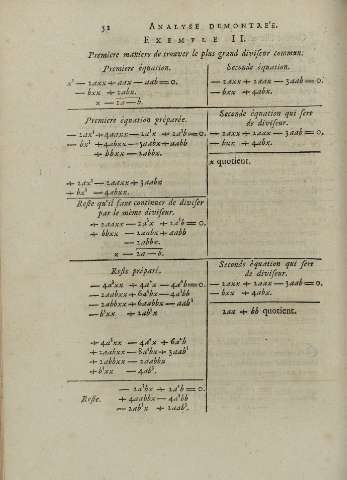 32 ANALYSE DEMONTRÉE.
EXEMPLE II.
Premiere maniere de trouver le plus grand diviseur commun.
Premiere équation.
x³ — 2axx + aax — aab = 0.
— bxx + 2abx.
x — 2a — b.
Seconde équation.
— 2axx + 2aax — 3aab = 0.
— bxx + 4abx.
Premiere équation préparée.
— 2ax³ + 4aaxx — 2a³x + 2a³b = 0.
— bx³ + 4abxx — 3aabx + aabb
+ bbxx — 2abbx.
Seconde équation qui sert
de diviseur.
— 2axx + 2aax — 3aab = 0.
— bxx + 4abx.
x quotient.
+ 2ax³ — 2aaxx + 3aabx
— bx³ — 4abxx.
Reste qu'il faut continuer de diviser
par le même diviseur.
+ 2aaxx — 2a³x + 2a³b = 0.
+ bbxx — 2aabx + aabb
— 2abbx.
x — 2a — b.
Reste préparé.
— 4a³xx + 4a⁴x — 4a⁴b = 0.
— 2aabxx + 6a³bx — 4a³bb
— 2abbxx + 6aabbx — 2aab³
— b³xx + 2ab³x
Seconde équation qui sert
de diviseur.
— 2axx + 2aax — 3aab = 0.
— bxx + 4abx.
2aa + bb quotient.
+ 4a³xx — 4a⁴x + 6a⁴b
+ 2aabxx — 6a³bx + 3aab³
+ 2abbxx — 2aabbx
+ b³xx — 4ab³.
— 2a³bx + 2a⁴b = 0.
Reste. + 4aabbx — 4a³bb
— 2ab³x + 2aab³.